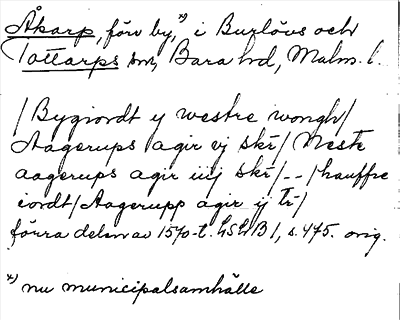 Åkarp, förr by,*) i Burlövs och
Tottarps snr, Bara hd, Malm. l.
/Bygiordt y westre wongh/
Aagerups agir ej skı/Neste
aagerups agir iiij skı/--/hauffre
iordt/Aagerupp agir ij tı/
förra delen av 1570-t. LSLB 1, s. 475. orig.
*) nu municipalsamhälle